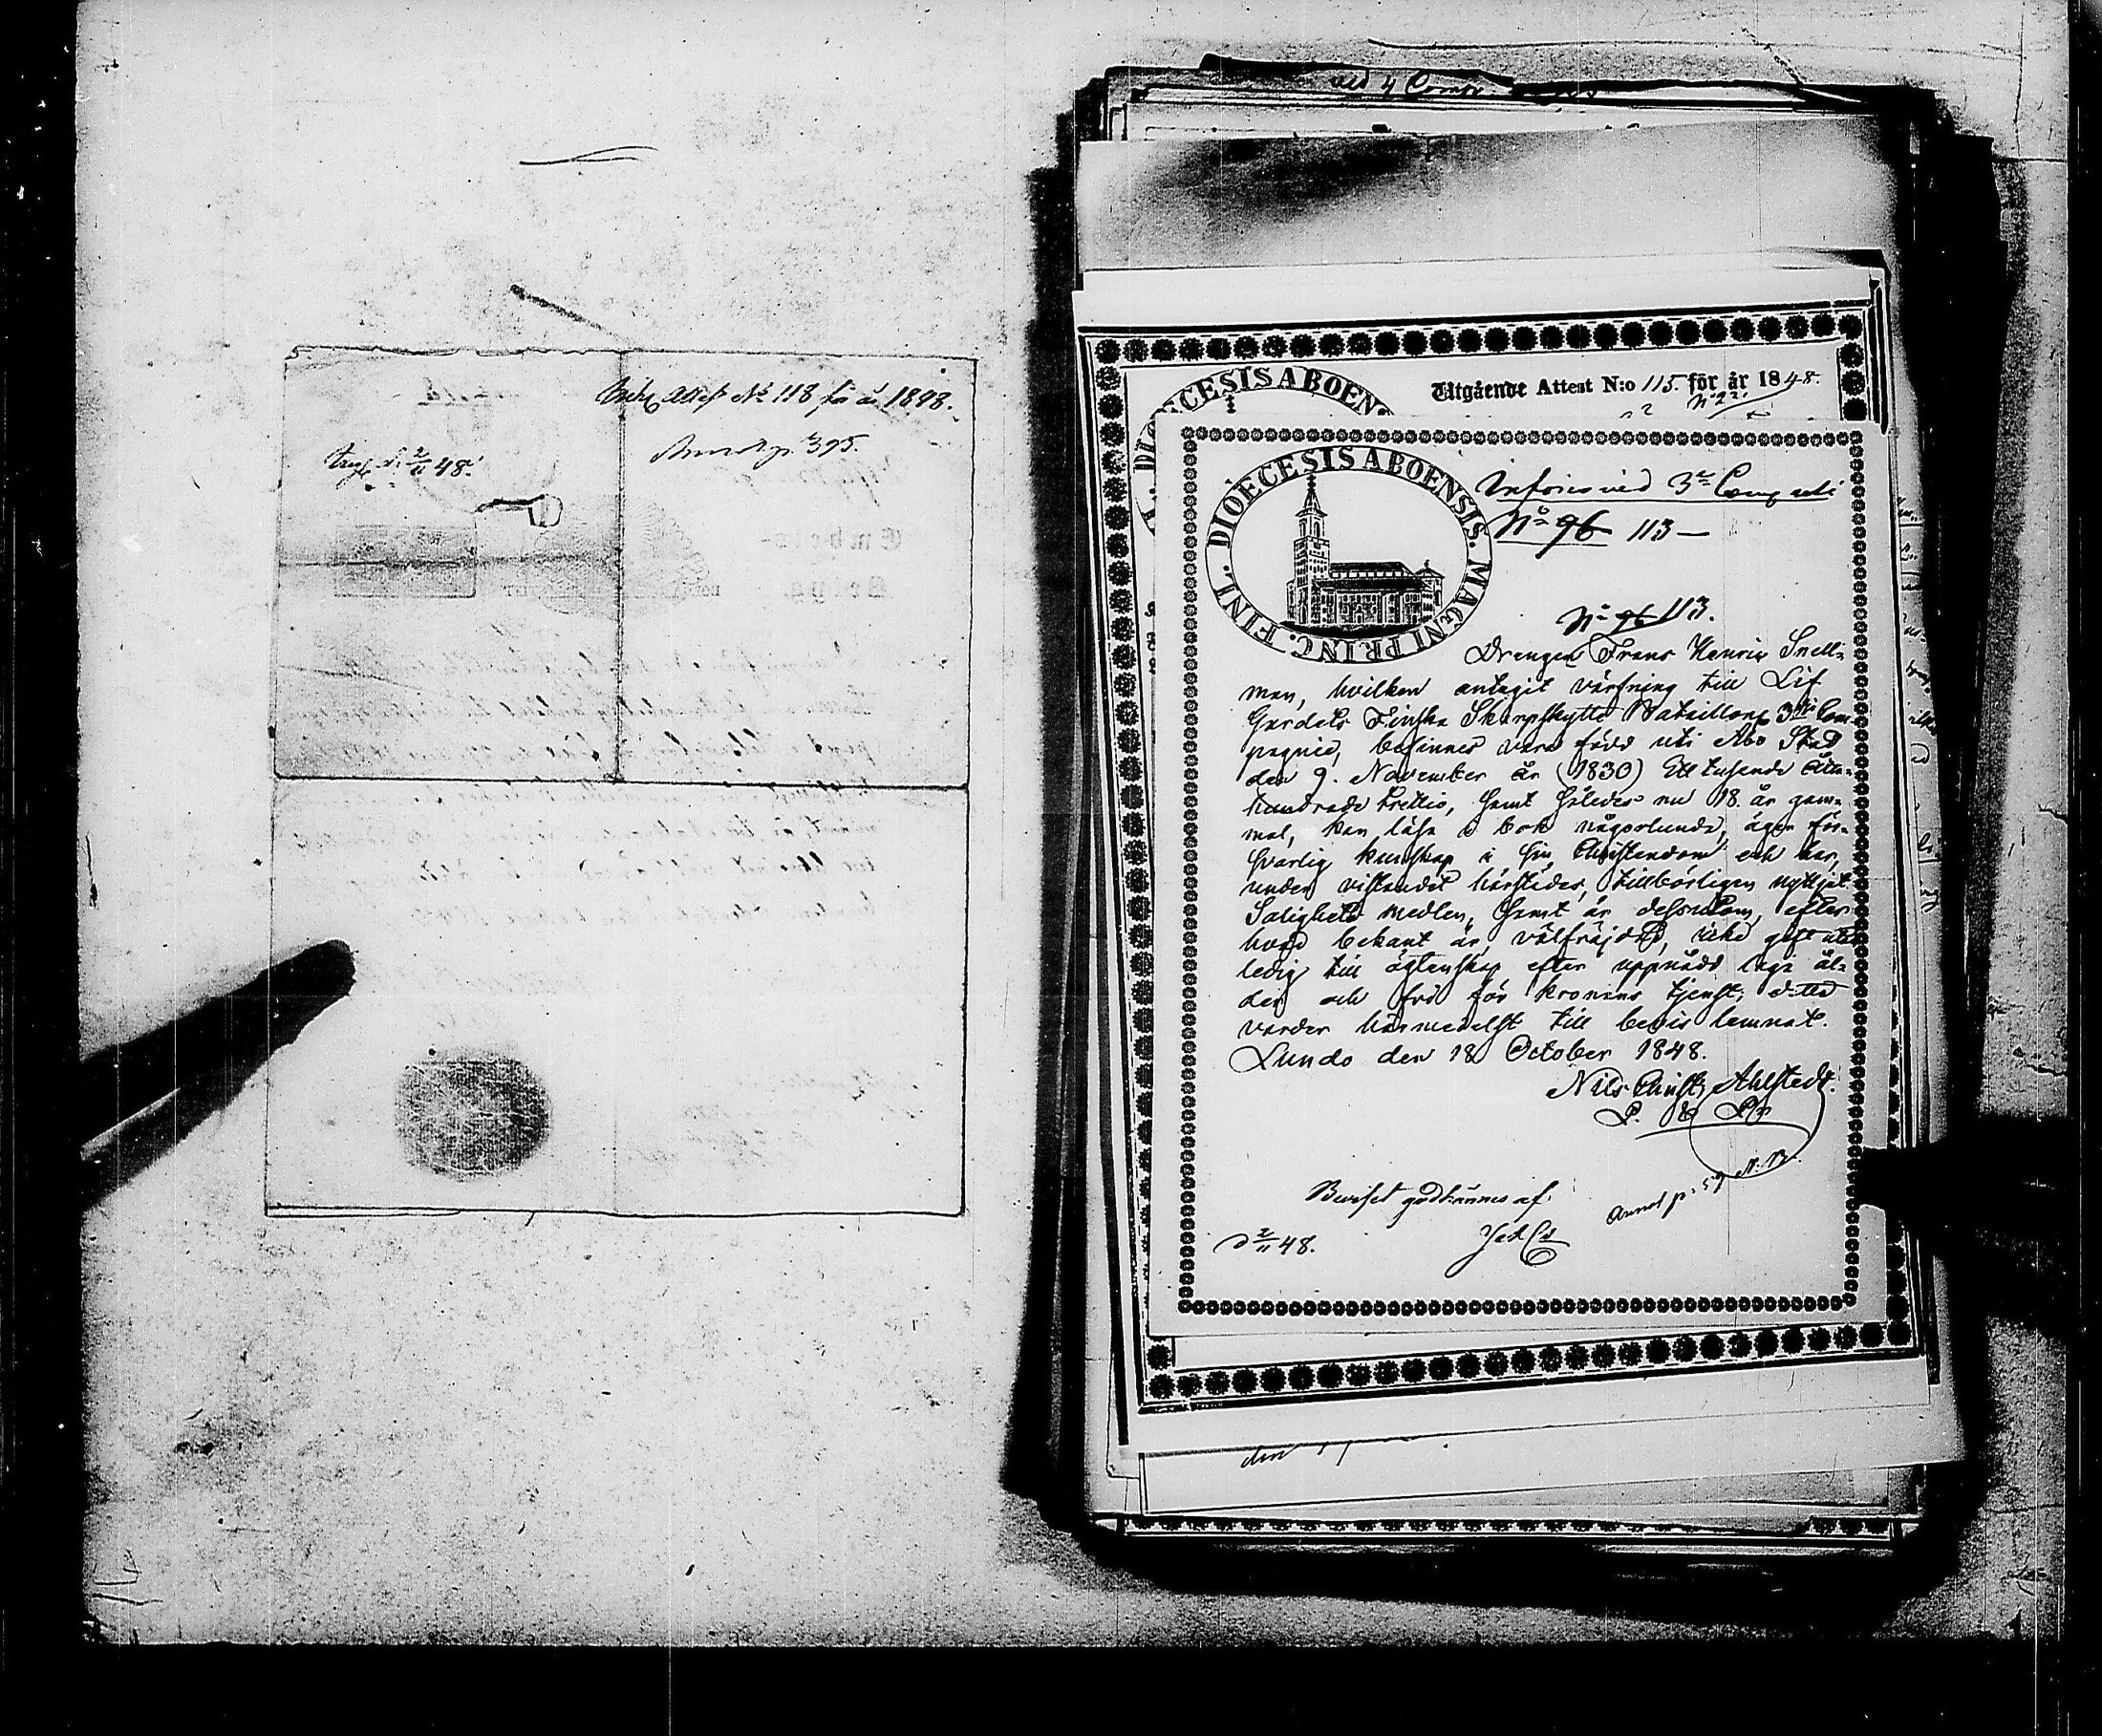 ved 4 Comp.
Attest No 118 för år 1848.
Annot p. 395.
d. 2/11 48.
Utgående Attest N:o 115. för år 1848.
No 22.
DIOECESIS ABOEN
DIOECESIS ABOENSIS. MAGNI PRINC. FINL.
Införes vid 3ie Compani
No 96 113 —
No 96 113.
Drengen Frans Henric Snell-
man, hvilken antagit värfning till Lif
Gardets Finska Skarpskytte Bataillons 3die Com-
pagnie, befinnes vara född uti Åbo Stad
den 9. November år (1830) Ett tusende Åtta-
hundrade trettio, samt således nu 18. år gam-
mal, kan läsa i bok någorlunda, äger för-
svarlig kunskap i sin Christendom och har,
under vistandet härstädes, tillbörligen nyttjat
Salighets medlen, samt är dessutom, efter
hvad bekant är, välfräjdad, icke gift utan
ledig till ägtenskap efter uppnådd laga ål-
der och fri för kronans tjenst; detta
varder härmedelst till bevis lemnat.
Lundo den 18 October 1848.
Nils Christ. Ahlstedt.
P. & Pr
N. B.
Annot p. 59
Beviset godkännes af
d 2/11 48.
den